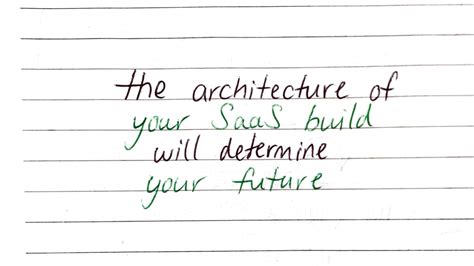 the architecture of
your SaaS build
will determine
your future